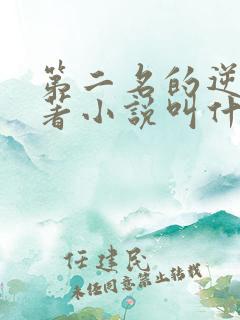 第二名的逆
著小説叫什
任建民
未经同意禁止转载